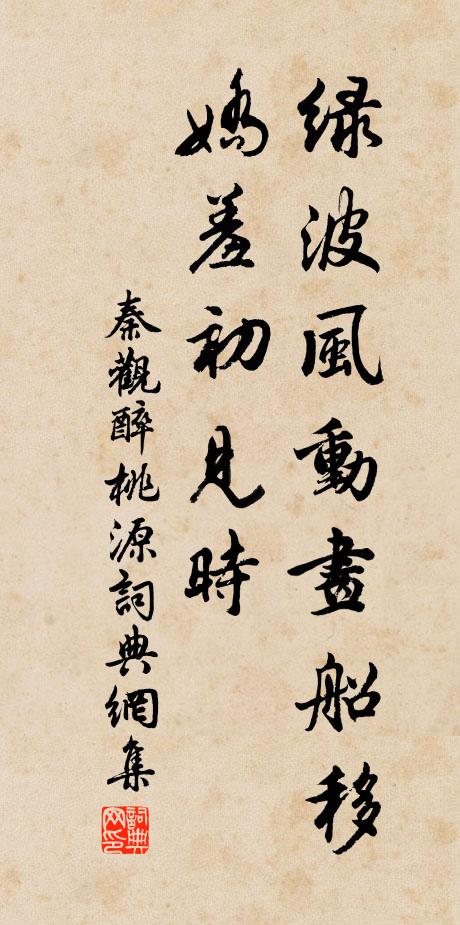 綠波風動畫船移
嬌羞初見時
秦觀醉桃源詞典網集
詞典网印